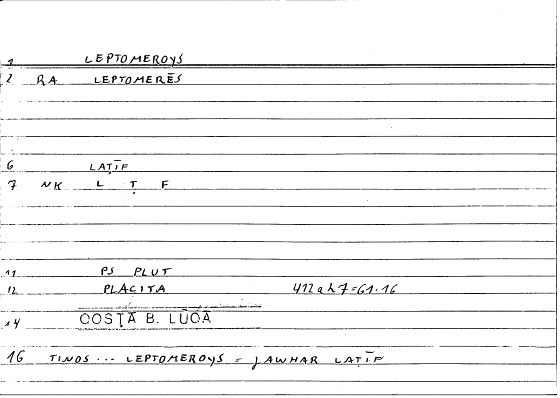 1 LEPTOMEROYS
2 RA LEPTOMERĒS
6 LAṬĪF
7 NK L Ṭ F
11 PS PLUT
12 PLACITA 412 a h 7 = 61.16
14 QOSṬĀ B. LŪQĀ
16 TINOS ... LEPTOMEROYS = JAWHAR LAṬĪF